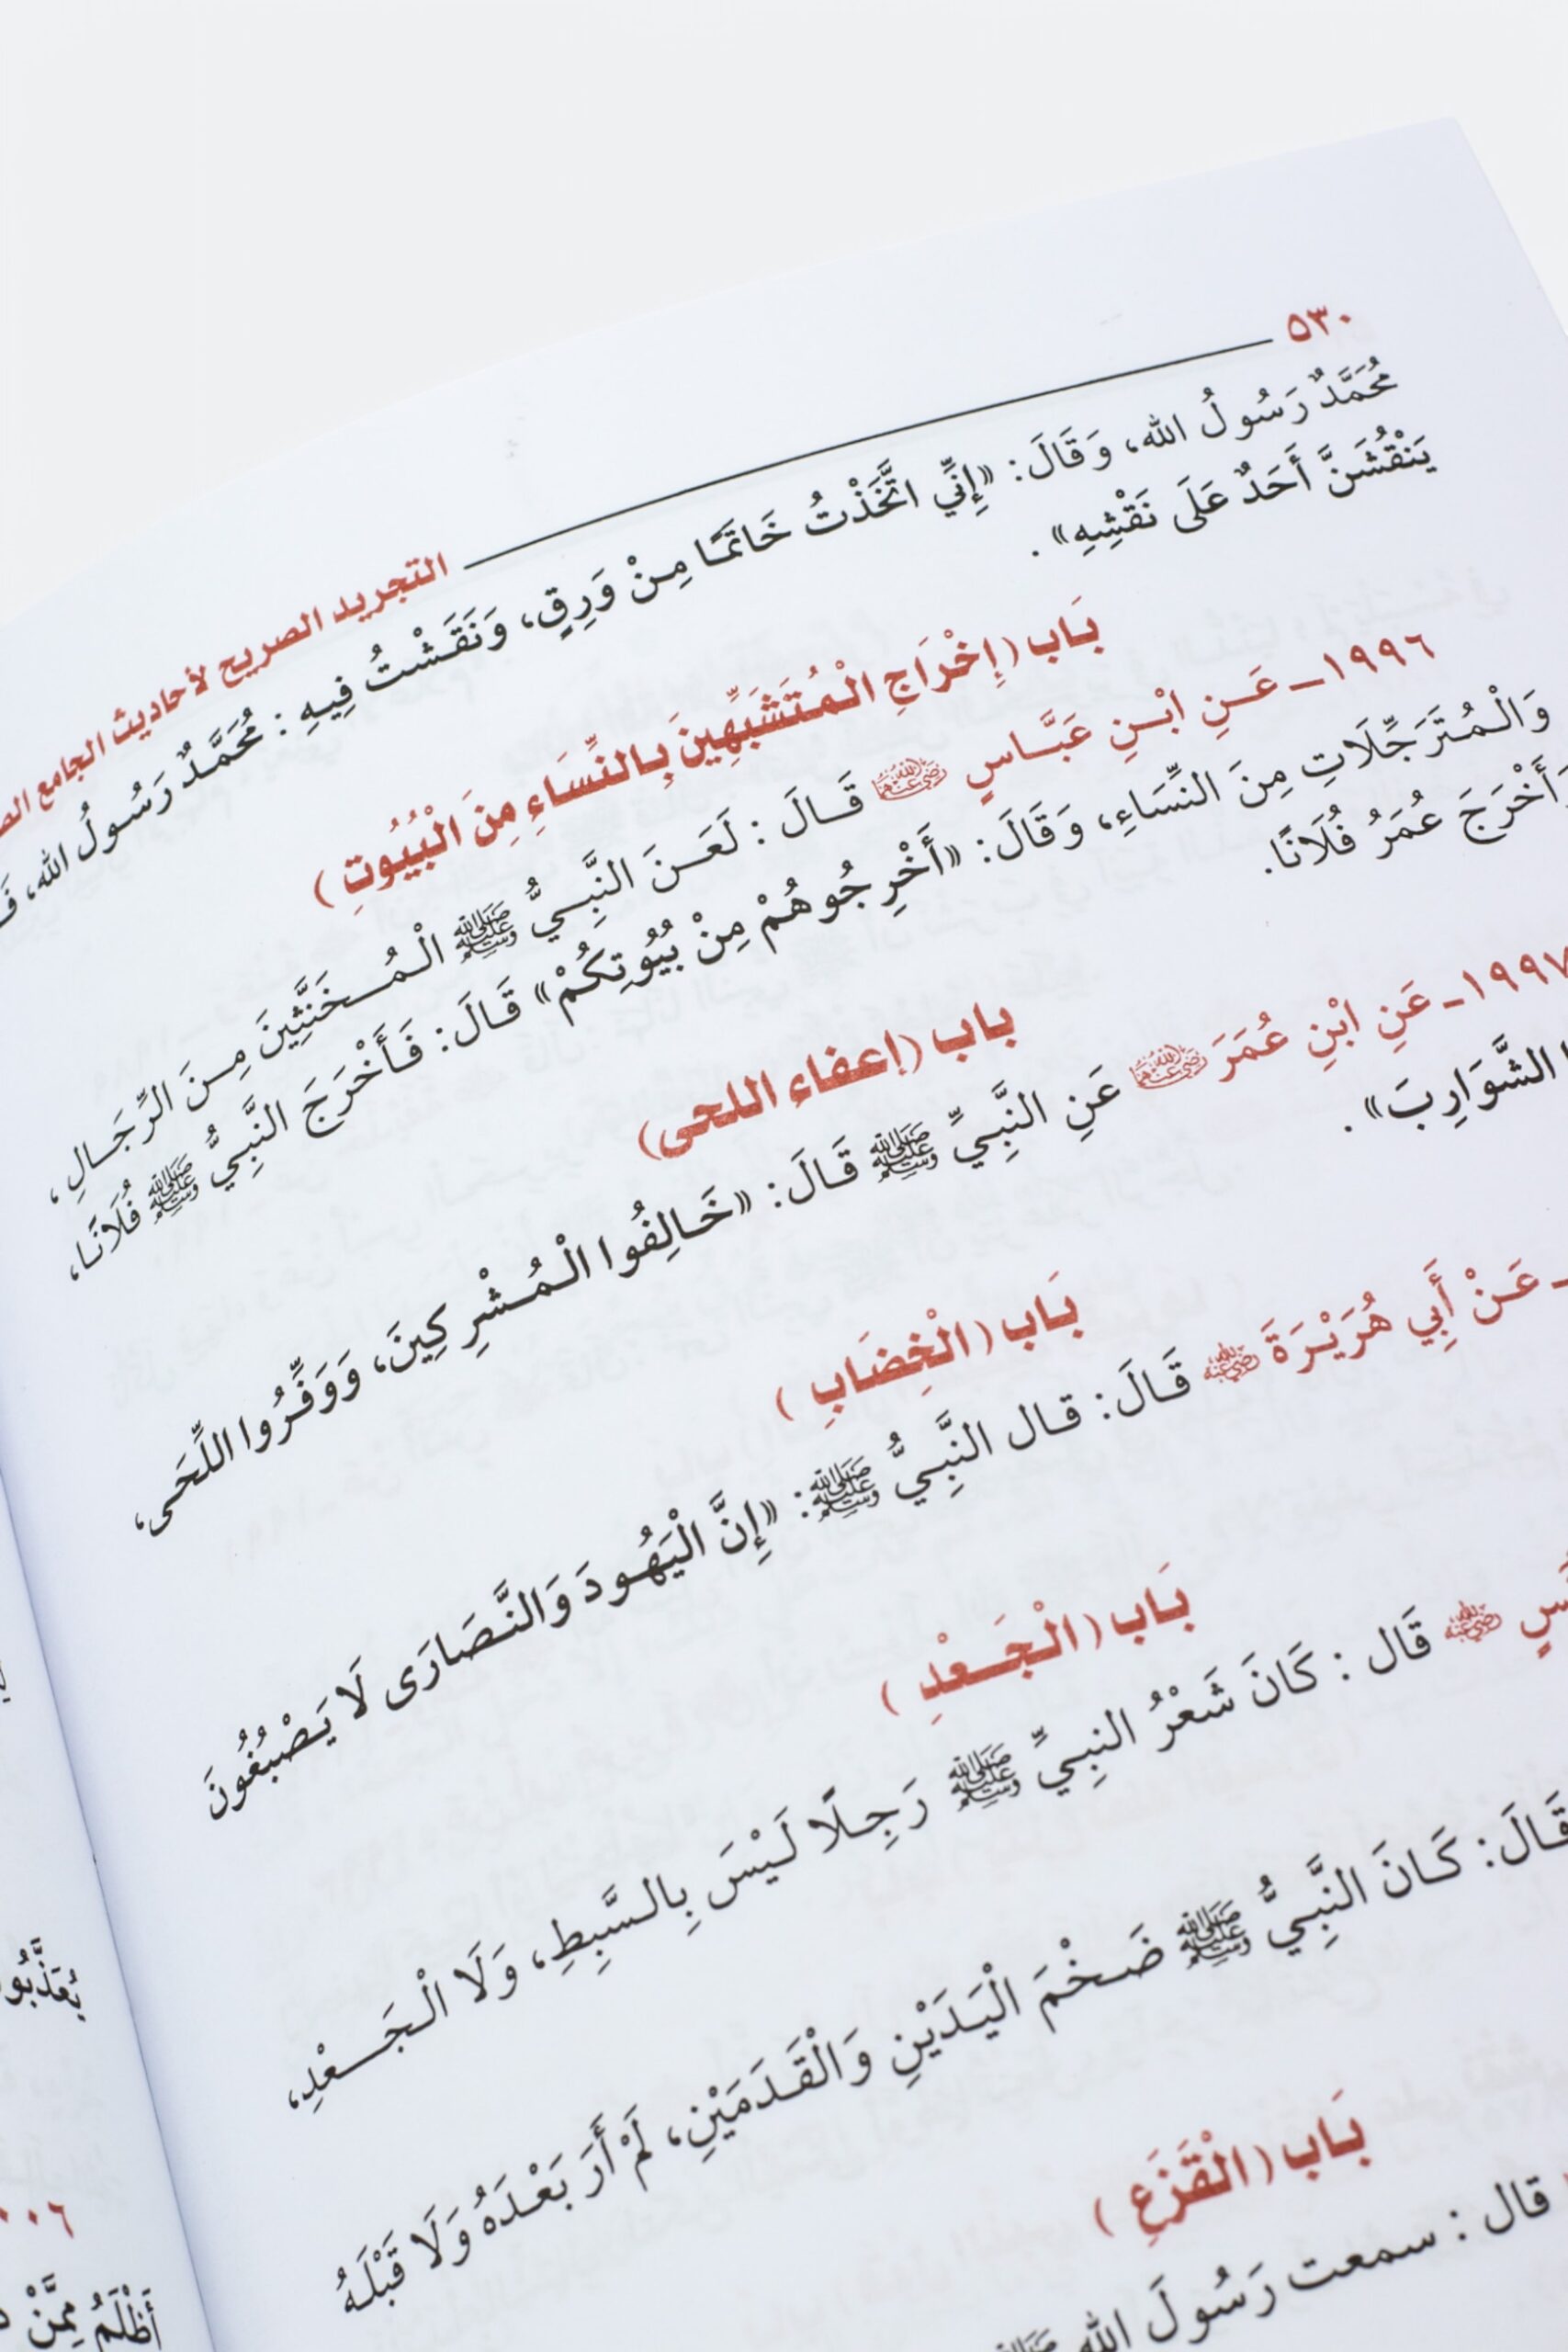 ٥٣٠ التجريد الصريح لأحاديث الجامع
مُحَمَّدٌ رَسُولُ الله، وَقَالَ: «إِنِّي اتَّخَذْتُ خَاتَمًا مِنْ وَرِقٍ، وَنَقَشْتُ فِيهِ : مُحَمَّدٌ رَسُولُ الله،
يَنْقُشَنَّ أَحَدٌ عَلَى نَقْشِهِ» .
بَاب (إِخْرَاجِ الْمُتَشَبِّهِينَ بِالنِّسَاءِ مِنَ الْبُيُوتِ )
١٩٩٦ـ عَنِ ابْنِ عَبَّاسٍ رضي الله عنهما قَالَ : لَعَنَ النَّبِيُّ ﷺ الْمُخَنَّثِينَ مِنَ الرِّجَالِ ،
وَالْمُتَرَجِّلَاتِ مِنَ النِّسَاءِ، وَقَالَ: «أَخْرِجُوهُمْ مِنْ بُيُوتِكُمْ» قَالَ: فَأَخْرَجَ النَّبِيُّ ﷺ فُلَانًا،
وَأَخْرَجَ عُمَرُ فُلَانًا.
باب (إعفاء اللحى)
١٩٩٧ـ عَنِ ابْنِ عُمَرَ رضي الله عنهما عَنِ النَّبِيِّ ﷺ قَالَ: «خَالِفُوا الْمُشْرِكِينَ، وَوَفِّرُوا اللِّحَى،
الشَّوَارِبَ» .
بَاب (الْخِضَابِ )
ـ عَنْ أَبِي هُرَيْرَةَ رضي الله عنه قَالَ: قال النَّبِيُّ ﷺ: «إِنَّ الْيَهُودَ وَالنَّصَارَى لَا يَصْبُغُونَ
بَاب (الْجَعْدِ )
رضي الله عنه قَال : كَانَ شَعْرُ النبِيِّ ﷺ رَجِلًا لَيْسَ بِالسَّبِطِ، وَلَا الْجَعْدِ،
قَالَ: كَانَ النَّبِيُّ ﷺ ضَخْمَ الْيَدَيْنِ وَالْقَدَمَيْنِ، لَمْ أَرَ بَعْدَهُ وَلَا قَبْلَهُ
بَاب (الْقَزَعِ )
قال : سمعت رَسُولَ الله
أَظْلَمُ مِمَّنْ